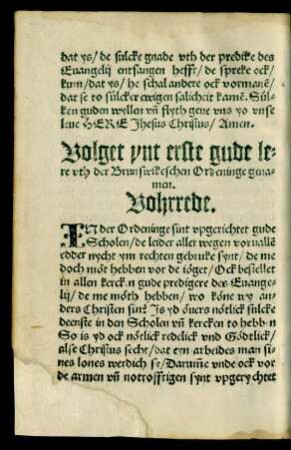 dat ys/ de sülcke gnade vth der predike des
Euangelij entfangen hefft/ de spreke ock/
kum/ dat ys/ he schal andere ock vormanē/
dat se to sülcker ewigen salicheit kamē. Sül-
ken guden wyllen vñ flyth geue vns yo vnse
leue HERE Jhesus Christus/ Amen.
Volget ynt erste gude le-
re vth der Brunswikeschen Ordeninge gena-
men.
Vohrrede.
IN der Ordeninge sint vpgerichtet gude
Scholen/ de leider aller wegen voruallē
edder nycht ym rechten gebruke synt/ de me
doch möt hebben vor de iöget/ Ock bestellet
in allen kercken gude predigere des Euange-
lij/ de me möth hebben/ wo köne wy an-
ders Christen sin? Is yd öuers nötlick sülcke
deenste in den Scholen vñ kercken to hebbn
So is yd ock nötlick redelick vnd Gödtlick/
alse Christus secht/ dat eyn arbeides man si-
nes lones werdich se/ Darumē vnde ock vor
de armen vñ notrofftigen synt vpgerychtet